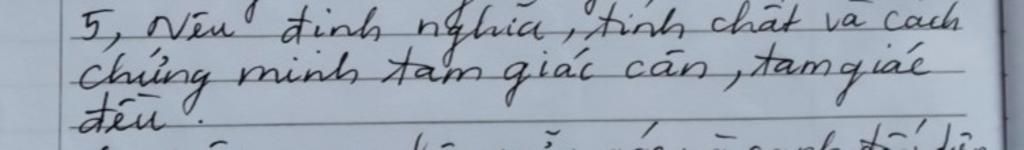 5, Nêu định nghĩa, tính chất và cách
chứng minh tam giác cân, tam giác
đều.